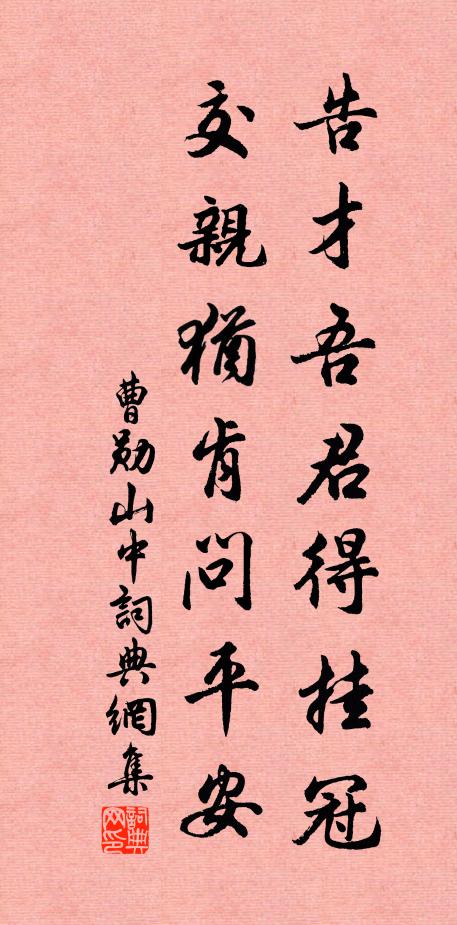 告才吾君得挂冠
交親猶肯问平安
曹勛山中詞典網集
詞典网印